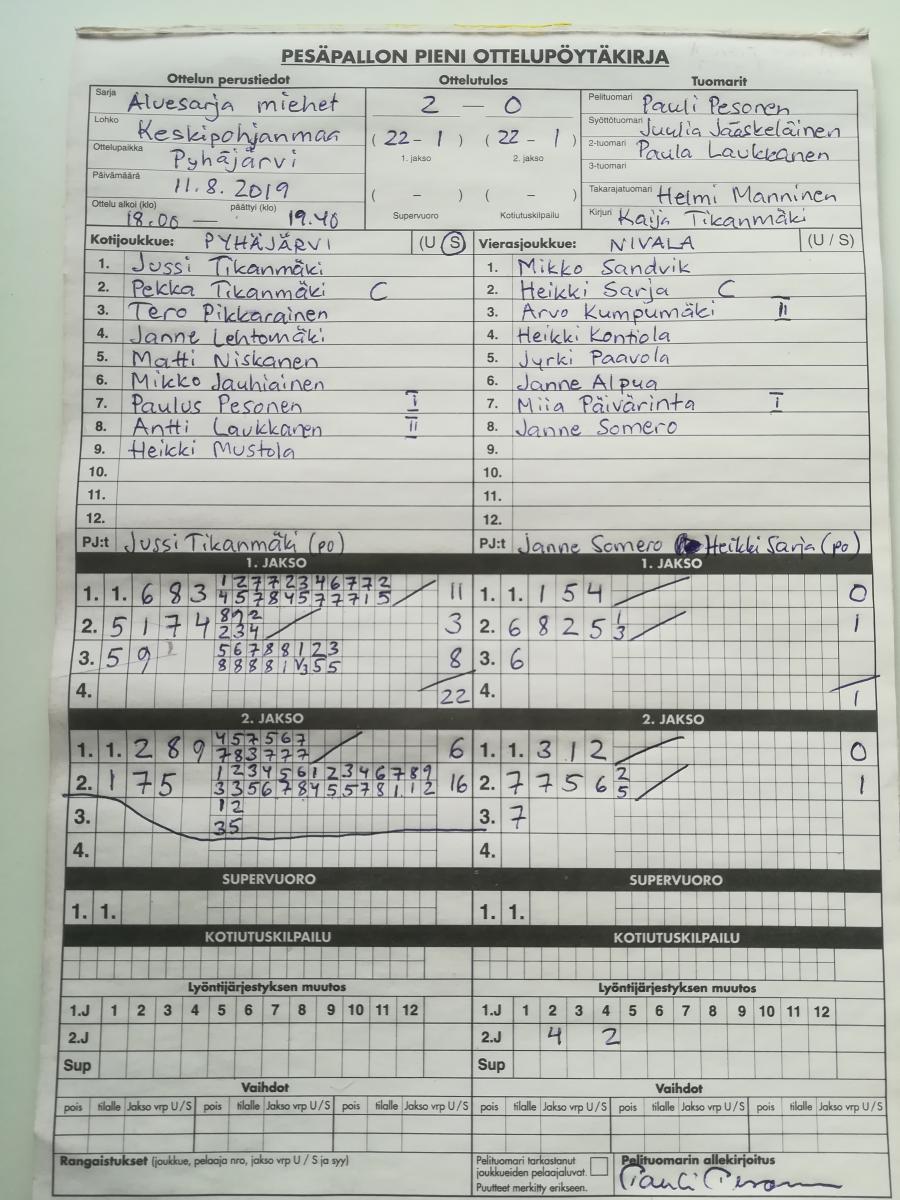 PESÄPALLON PIENI OTTELUPÖYTÄKIRJA
Ottelun perustiedot Ottelutulos Tuomarit
Sarja Aluesarja miehet 2 – 0 Pelituomari Pauli Pesonen
Lohko Keskipohjanmaa (22 – 1) (22 – 1) Syöttötuomari Juulia Jääskeläinen
Ottelupaikka Pyhäjärvi 1. jakso 2. jakso 2-tuomari Paula Laukkanen
3-tuomari
Päivämäärä 11.8.2019 ( – ) ( – ) Takarajatuomari Helmi Manninen
Ottelu alkoi (klo) 18.00 — päättyi (klo) 19.40 Supervuoro Kotiutuskilpailu Kirjuri Kaija Tikanmäki
Kotijoukkue: PYHÄJÄRVI (U S) Vierasjoukkue: NIVALA (U / S)
1. Jussi Tikanmäki 1. Mikko Sandvik
2. Pekka Tikanmäki C 2. Heikki Sarja C
3. Tero Pikkarainen 3. Arvo Kumpumäki II
4. Janne Lehtomäki 4. Heikki Kontiola
5. Matti Niskanen 5. Jyrki Paavola
6. Mikko Jauhiainen 6. Janne Alpua
7. Paulus Pesonen I 7. Miia Päivärinta I
8. Antti Laukkanen II 8. Janne Somero
9. Heikki Mustola 9.
10. 10.
11. 11.
12. 12.
PJ:t Jussi Tikanmäki (po) PJ:t Janne Somero Heikki Sarja (po)
1. JAKSO 1. JAKSO
1. 1. 6 8 3 1 2 7 7 2 3 4 6 7 7 2 11 1. 1. 1 5 4 0
4 5 7 8 4 5 7 7 7 1 5
2. 5 1 7 4 8 9 2 3 2. 6 8 2 5 1 1
2 3 4 3
3. 5 9 5 6 7 8 8 1 2 3 8 3. 6
8 8 8 8 1 3 5 5
4. 22 4. 1
2. JAKSO 2. JAKSO
1. 1. 2 8 9 4 5 7 5 6 7 6 1. 1. 3 1 2 0
7 8 3 7 7 7
2. 1 7 5 1 2 3 4 5 6 1 2 3 4 6 7 8 9 16 2. 7 7 5 6 2 1
3 3 5 6 7 8 4 5 5 7 8 1 1 2 5
3. 1 2 3. 7
3 5
4. 4.
SUPERVUORO SUPERVUORO
1. 1. 1. 1.
KOTIUTUSKILPAILU KOTIUTUSKILPAILU
Lyöntijärjestyksen muutos Lyöntijärjestyksen muutos
1.J 1 2 3 4 5 6 7 8 9 10 11 12 1.J 1 2 3 4 5 6 7 8 9 10 11 12
2.J 2.J 4 2
Sup Sup
Vaihdot Vaihdot
pois tilalle Jakso vrp U / S pois tilalle Jakso vrp U / S pois tilalle Jakso vrp U / S pois tilalle Jakso vrp U / S pois tilalle Jakso vrp U / S pois tilalle Jakso vrp U / S
Rangaistukset (joukkue, pelaaja nro, jakso vrp U / S ja syy) Pelituomari tarkastanut joukkueiden pelaajaluvat. Puutteet merkitty erikseen. Pelituomarin allekirjoitus
Pauli Pesonen